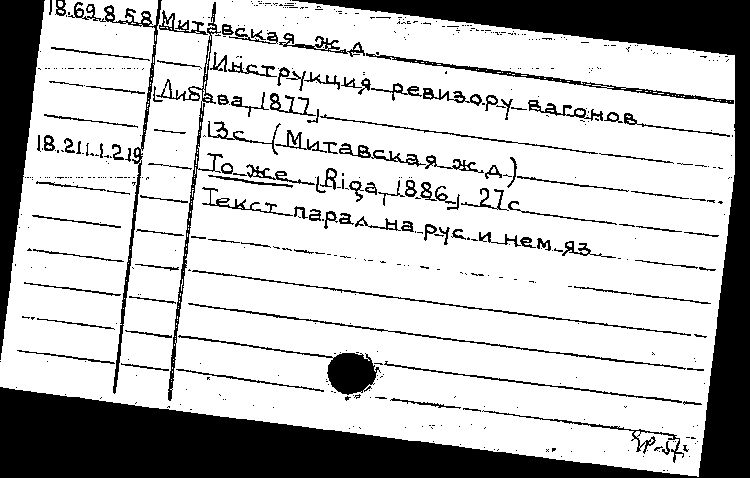 18.69.8.58 Митавская ж.д.
Инструкция ревизору вагонов.
[Либава, 1877].
13с. (Митавская ж.д.)
18.211.1.219 То же. [Riga, 1886], 27с.
Текст парал. на рус. и нем. яз.